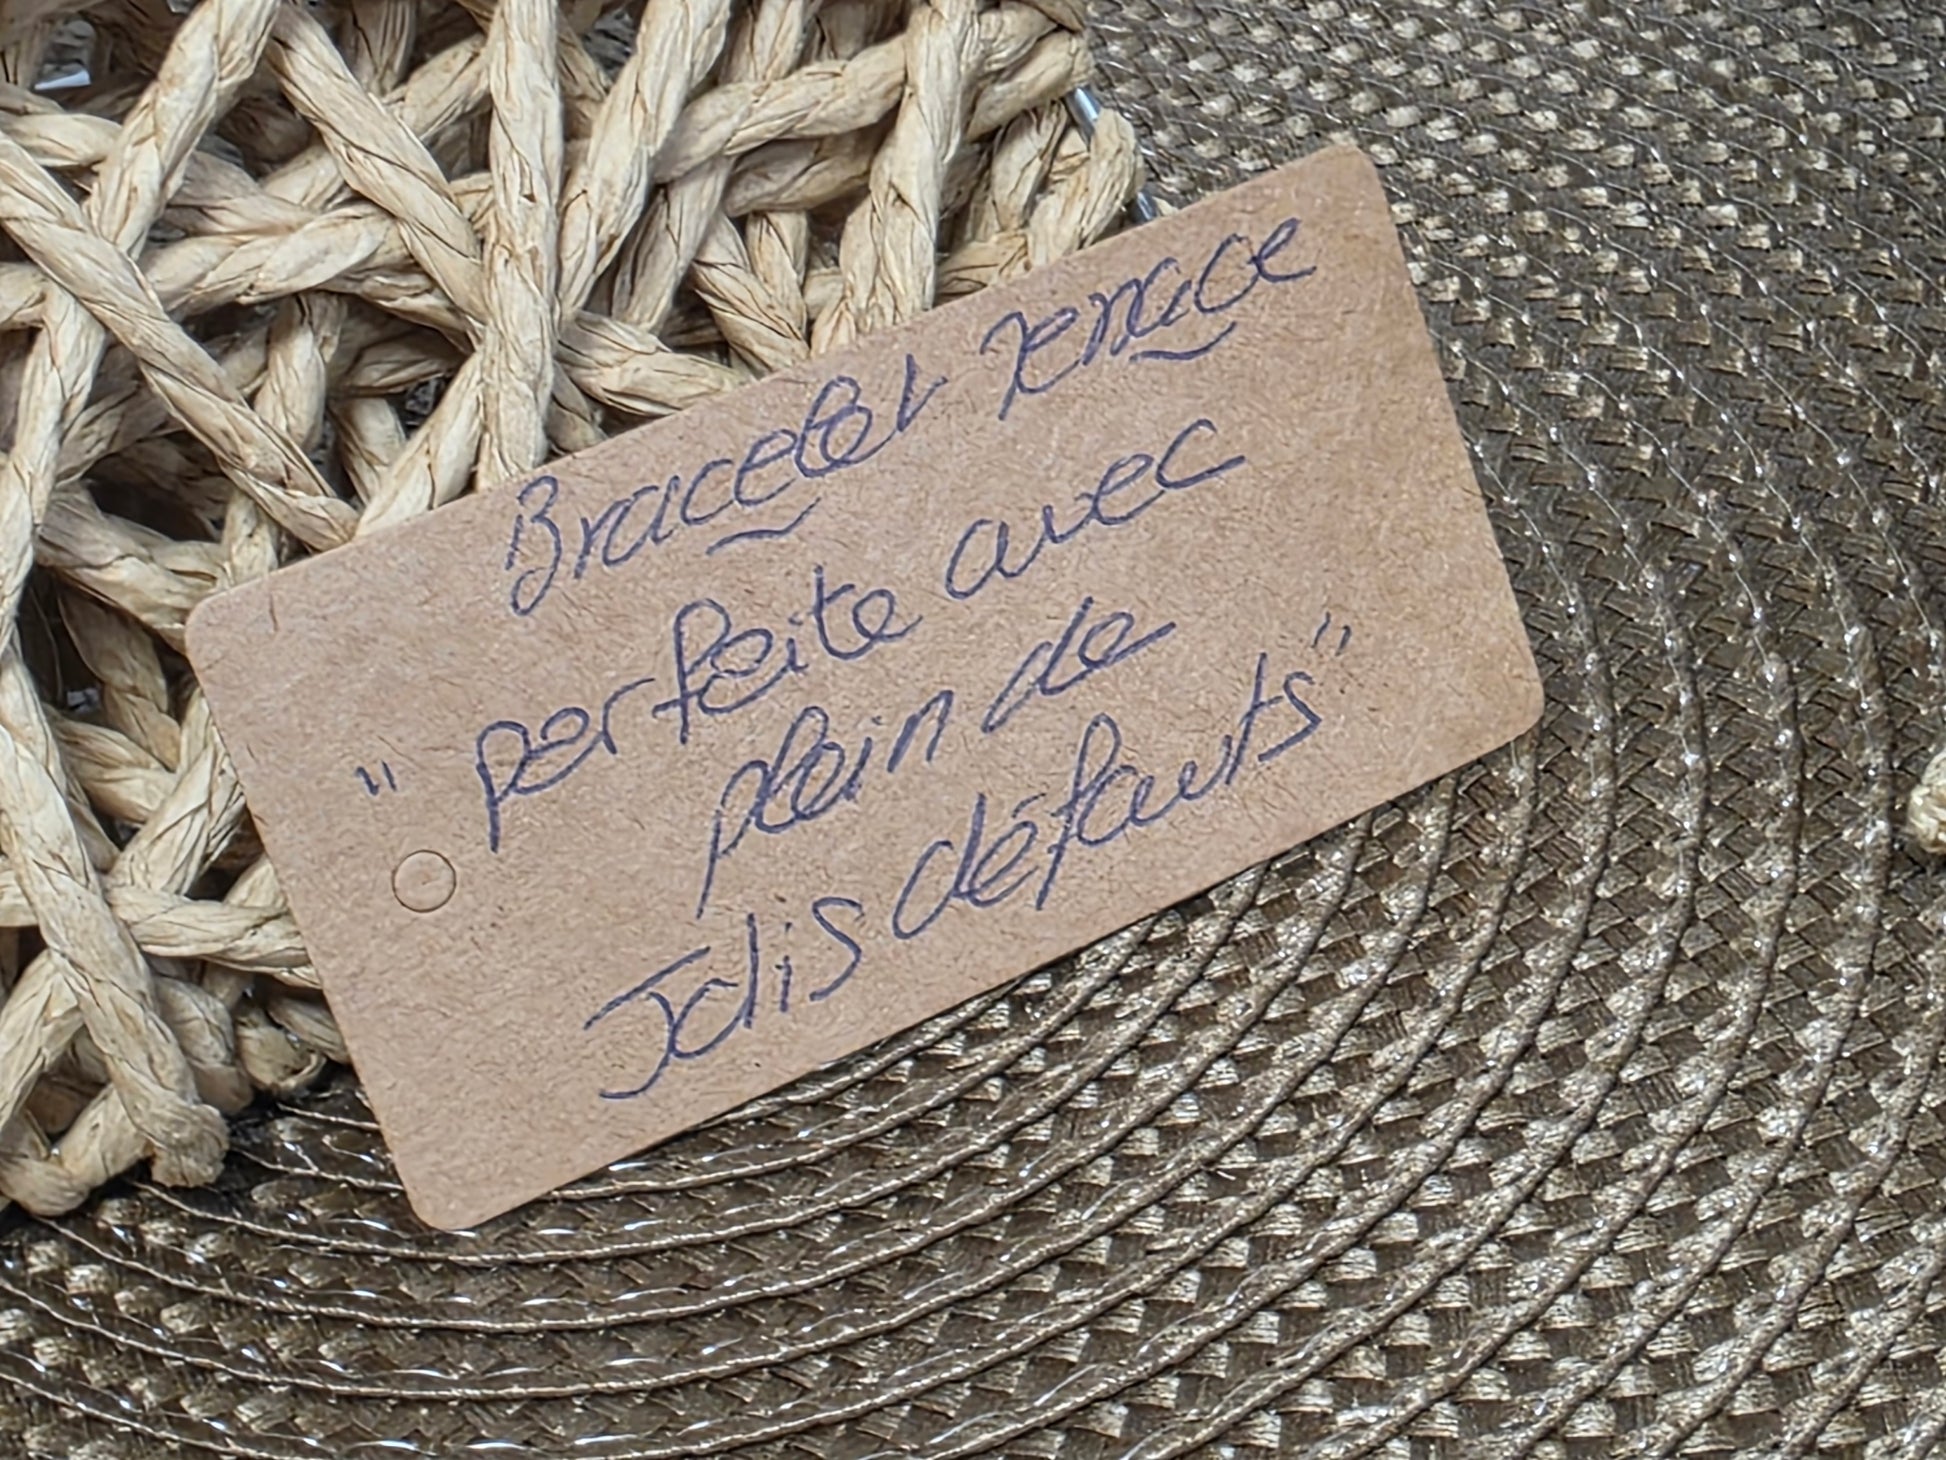 Bracelet Tenace
" perfeite avec
plein de
Jolis défauts "